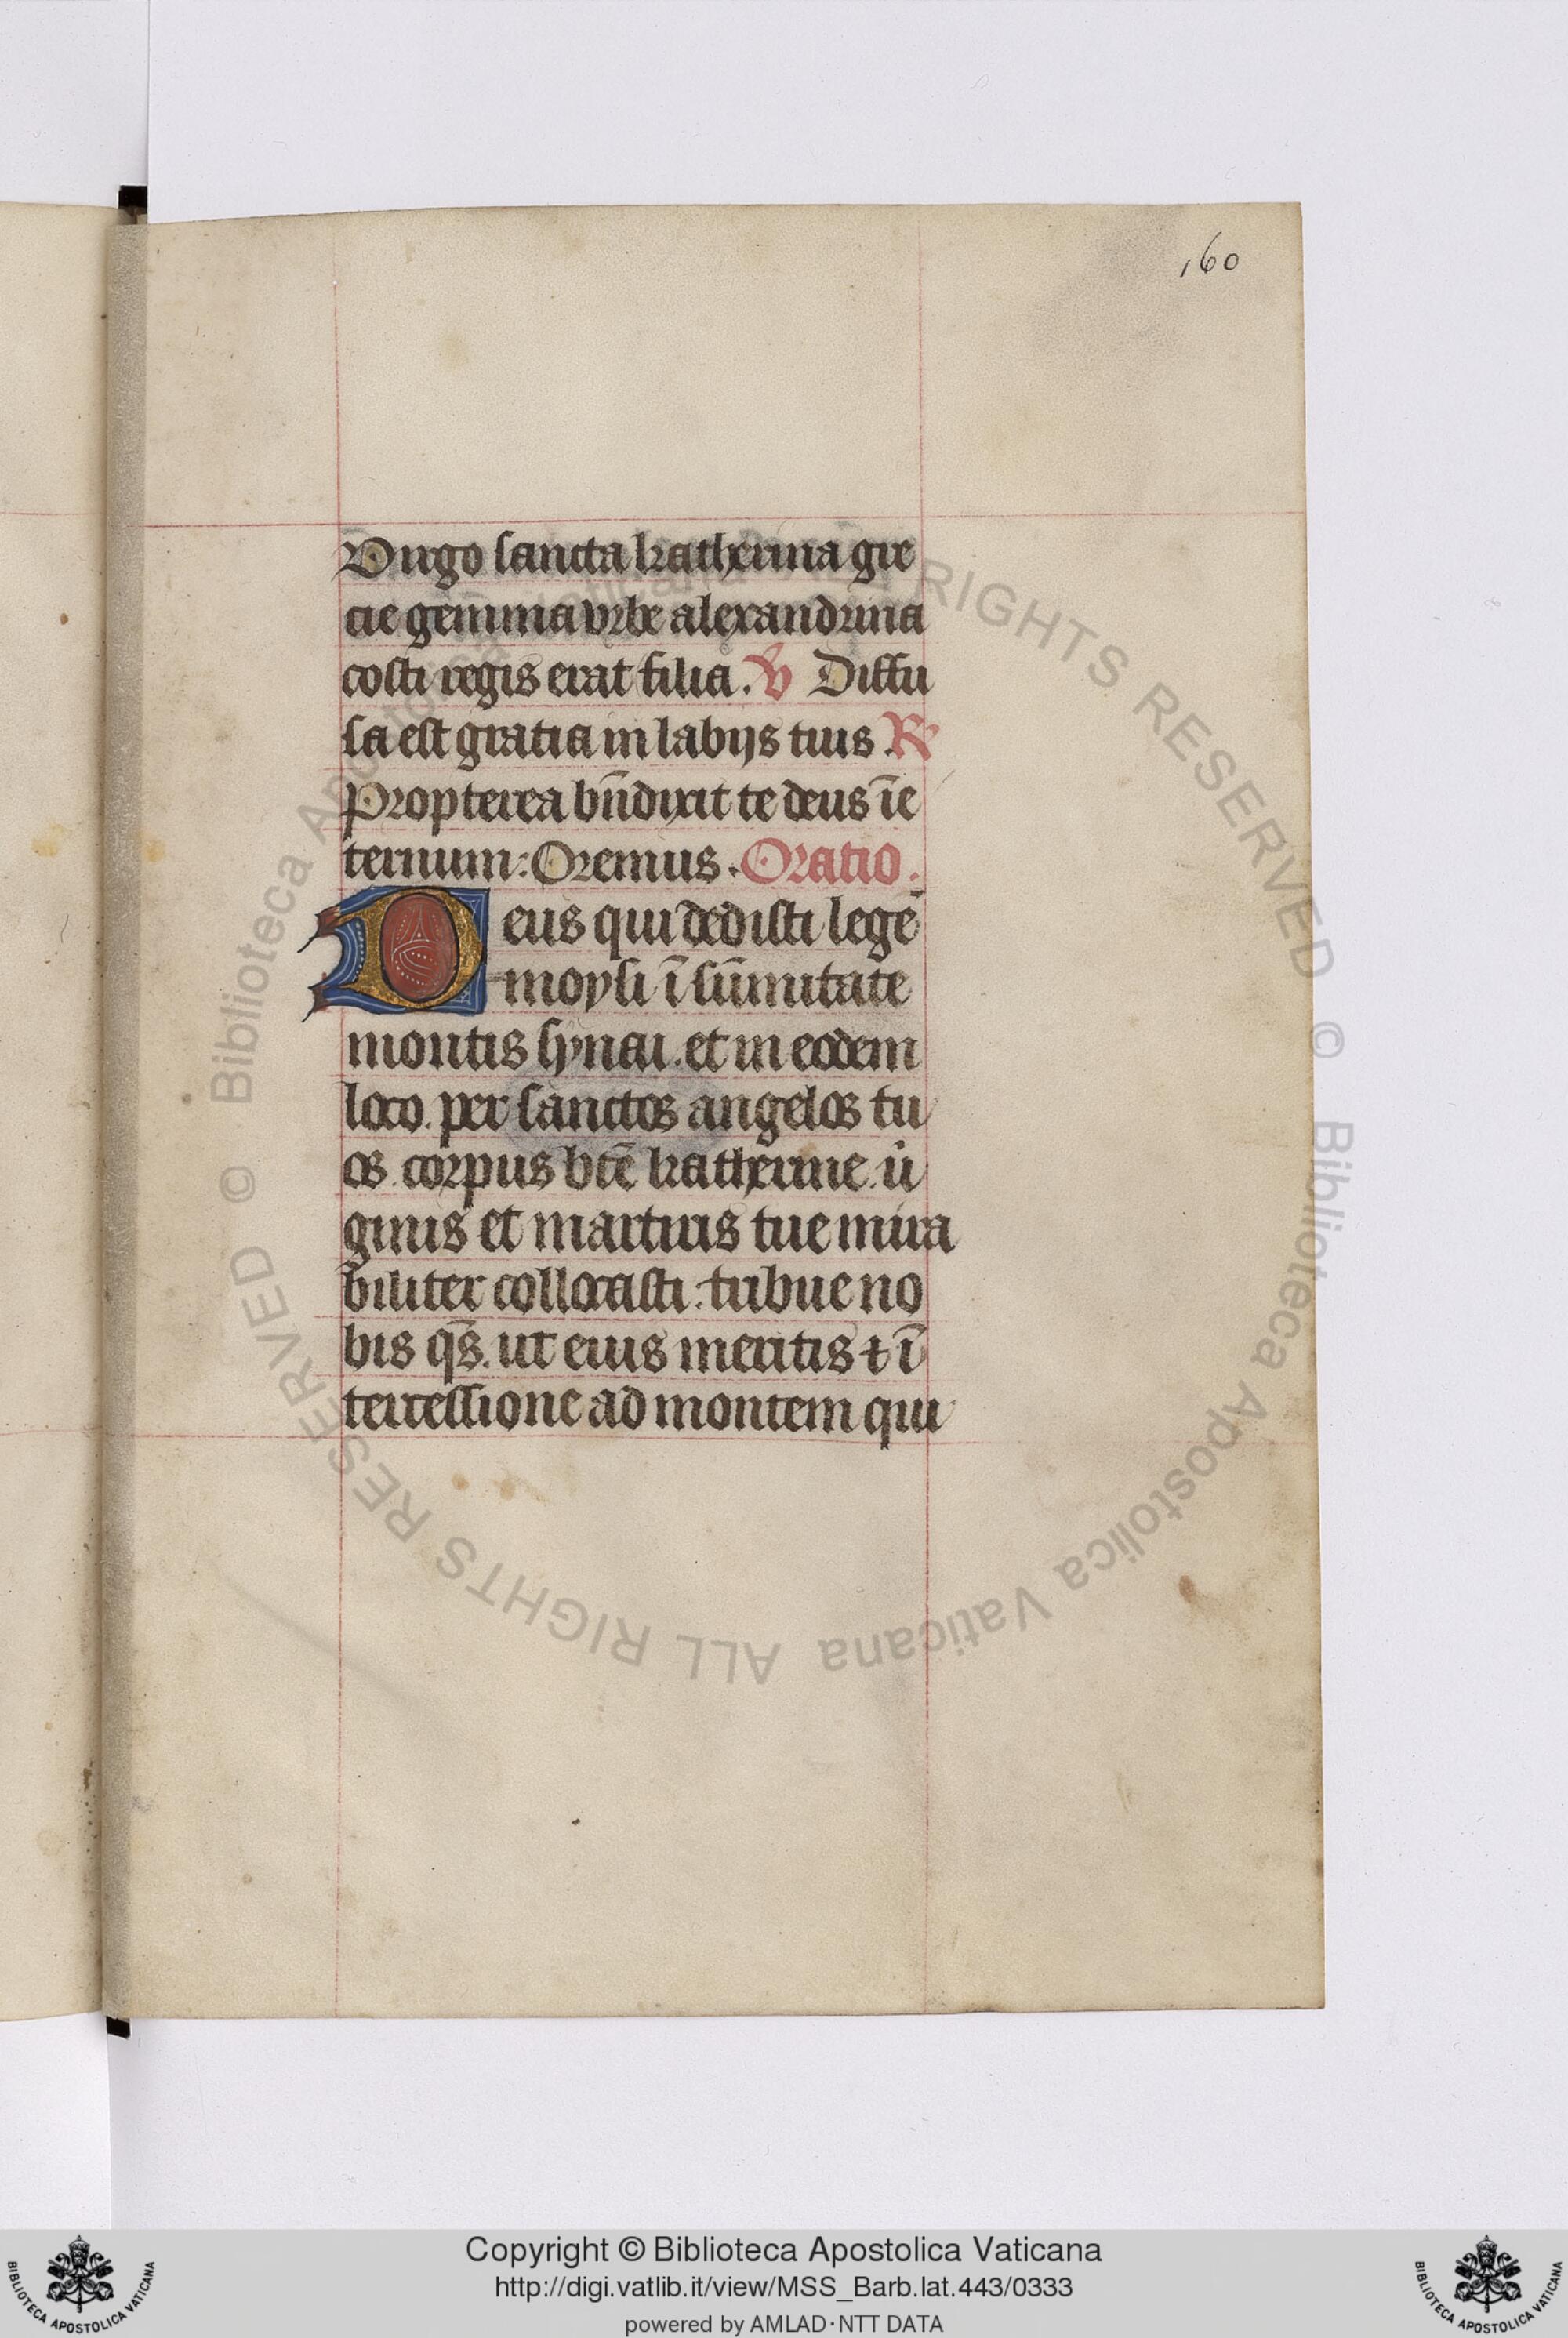 160
Virgo sancta katherina gre
cie gemma vrbe alexandrina
costi regis erat filia. V Diffu
sa est gratia in labijs tuis. R
Propterea bn̄dixit te deus ī e
ternum: Oremus. Oratio.
Deus qui dedisti legē
moysi ī sūmitate
montis synai. et in eodem
loco. per sanctos angelos tu
os. corpus btē katherine. v̇
ginis et martiris tue mira
biliter collocasti: tribue no
bis qs̄. ut eius meritis ⁊ ī
tercessione ad montem qui
Copyright © Biblioteca Apostolica Vaticana
http://digi.vatlib.it/view/MSS_Barb.lat.443/0333
powered by AMLAD·NTT DATA
BIBLIOTECA APOSTOLICA VATICANA
BIBLIOTECA APOSTOLICA VATICANA
© Biblioteca Apostolica Vaticana ALL RIGHTS RESERVED © Biblioteca Apostolica Vaticana ALL RIGHTS RESERVED